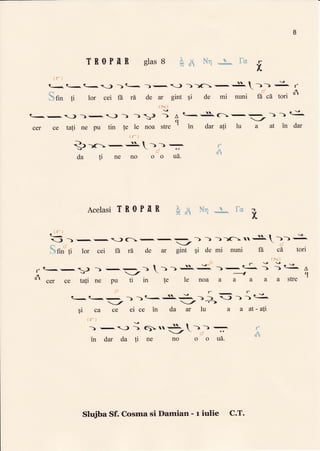 8
TROPAR glas 8
Sfin ți lor cei fă ră de ar gint și de mi nuni fă că tori
cer ce tați ne pu tin țe le noa stre în dar ați lu a at în dar
da ți ne no o o uă.
Acelasi TROPAR
Sfin ți lor cei fă ră de ar gint și de mi nuni fă că tori
cer ce tați ne pu ti in țe le noa a a a a stre
și ca ce ei ce în da ar lu a a at - ați
în dar da ți ne no o o uă.
Slujba Sf. Cosma si Damian - 1 iulie C.T.